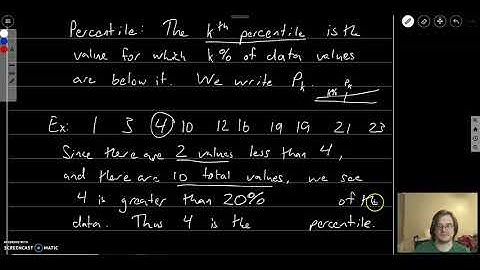 Percentile: The kth percentile is the
value for which k% of data values
are below it. We write Pk.
k% Pk
Ex: 1 3 4 10 12 16 19 19 21 23
Since there are 2 values less than 4,
and there are 10 total values, we see
4 is greater than 20% of the
data. Thus 4 is the percentile.
RECORDED WITH
SCREENCAST MATIC